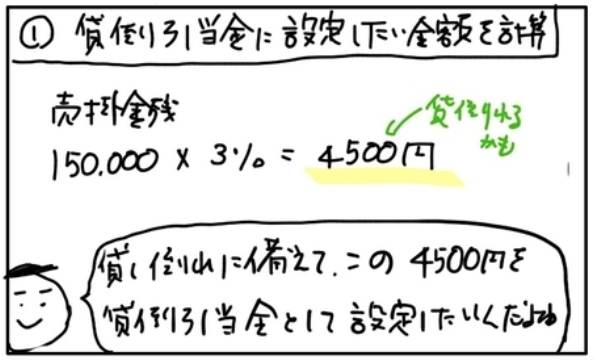 ① 貸倒引当金に設定したい金額を計算
売掛金残
150.000 × 3% = 4500円
貸倒れる
かも
貸し倒れに備えて、この 4500円を
貸倒引当金として設定したいんだよね